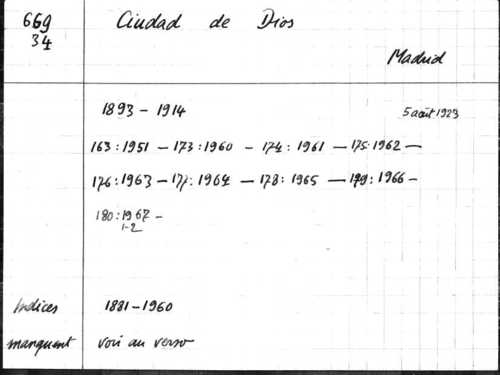 669
34
Ciudad de Dios
Madrid
1893 - 1914
5 août 1923
163:1951 - 173:1960 - 174:1961 - 175:1962 -
176:1963 - 177:1964 - 178:1965 - 179:1966 -
180:1967 -
1-2
Indices 1881-1960
manquent voir au verso